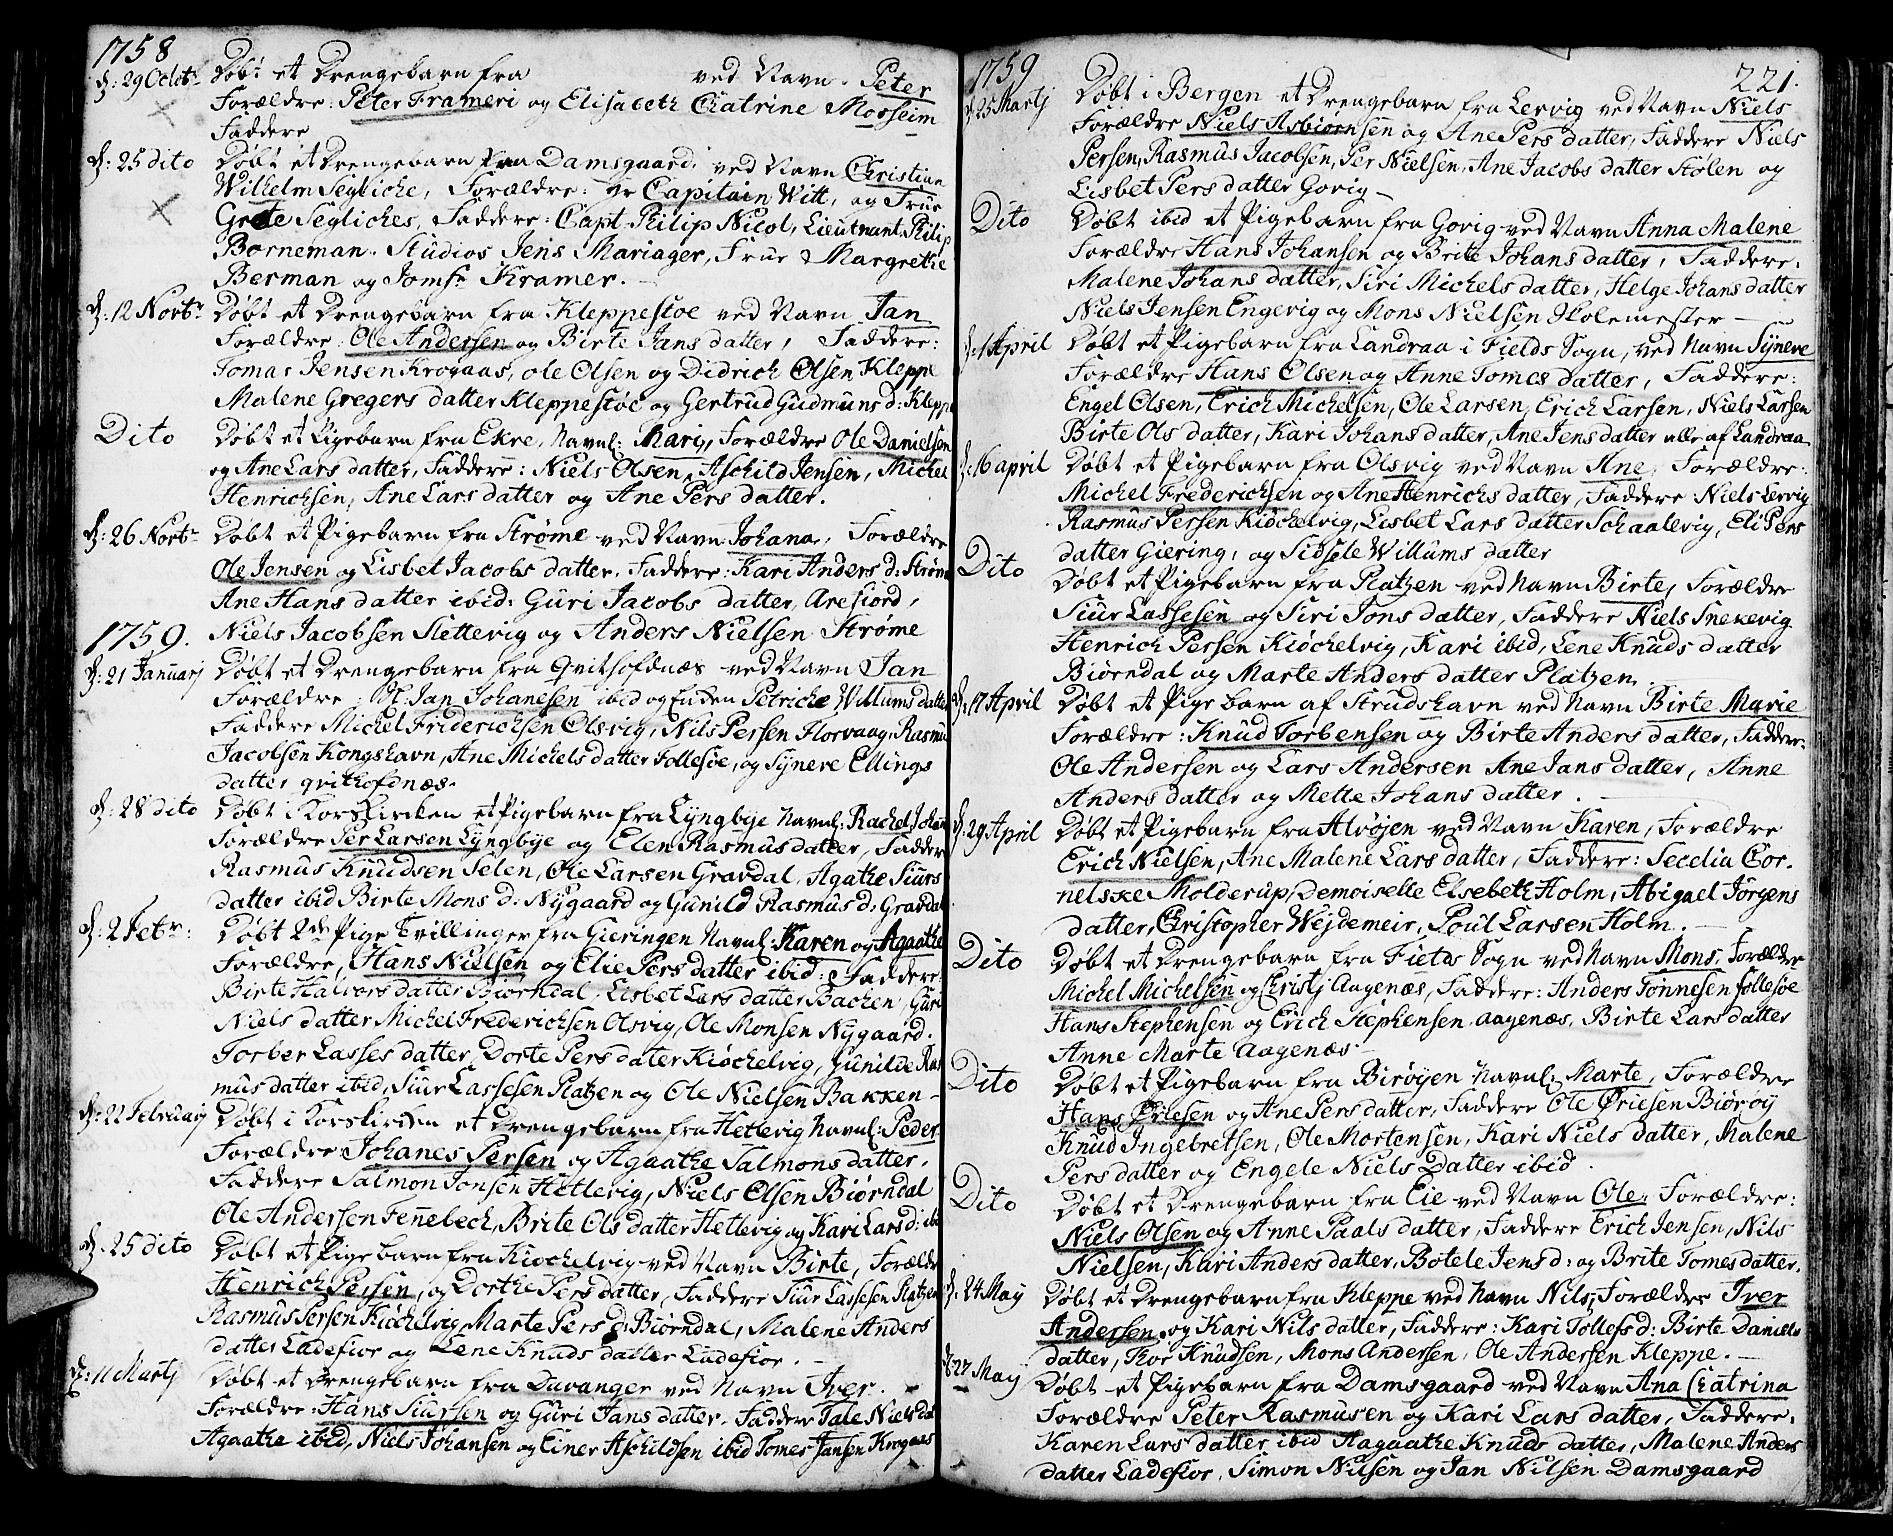 1758
d: 29 Octobr Døbt et Drengebarn fra ved Navn. Peter
Forældre: Peter Frameri og Elisabeth Chatrine Mosseim
Faddere
d: 25 dito Døbt et Drengebarn fra Damsgaard, ved Navn Christian
Wilhelm Segliche, Forældre: Hr Capitain Witt, og Frue
Grete Segliches, Faddere: Capt. Philip Nicol, Lieutnant Philip
Borneman. Studios Jens Mariager, Frue Margrethe
Berman og Jomfr Kramer.
d: 12 Novbr Døbt et Drengebarn fra Kleppestøe ved Navn Jan
Forældre: Ole Andersen og Birte Jans datter, Faddere:
Tomas Jensen Krogaas, ole Olsen og Didrich Olsen Kleppe
Malene Gregers datter Kleppestøe og Gertrud Gudmuns d: Klepp
Dito Døbt et Pigebarn fra Ekre, Navnl: Mari, Forældre Ole Danielsen
og Ane Lars datter, Faddere: Niels Olsen, Aschild Jensen, Michel
Henrichsen, Ane Lars datter og Ane Pers datter.
d: 26 Novbr Døbt et Pigebarn fra Strøme ved Navn Johana, Forældre
Ole Jensen og Lisbet Jacobs datter, Faddere: Kari Anders d: Strøm
Ane Hans datter ibid: Guri Jacobs datter, Arefiord,
Niels Jacobsen Slettevig og Anders Nielsen Strøme
1759.
d: 21 Januarj Døbt et Drengebarn fra Qvitsofdnæs ved Navn Jan
Forældre: Jan Johanesen ibid og Petriche Willums datter
Faddere Michel Friderichsen Olsvig, Nils Persen Florvaag, Rasmu
Jacobsen Kongshavn, Ane Michels datter Follesøe, og Syneve Ellings
datter qvithofdnæs.
d: 28 dito Døbt i Korskirken et Pigebarn fra Lyngbye Navnl: Rachel
Forældre Per Larsen Lyngbye og Elen Rasmusdatter, Fadder
Rasmus Knudsen Selen, Ole Larsen Gravdal, Agathe Siurs
datter ibid Birte Mons d: Nygaard og Gunild Rasmus d: Gravdal
d: 2 Febr: Døbt 2de Pige Tvillinger fra Gieringen Navnl: Karen og Agaathe
Forældre, Hans Nielsen og Elie Pers datter ibid: Faddere:
Birte Halvors datter Biørndal, Lisbet Lars datter Bachen, Guri
Niels datter Michel Frederichsen Olsvig, Ole Monsen Nygaard.
Torber Lasses datter, Dorte Pers dater Kiøchelvig, Gunilde Ras
mus datter ibid, Siur Lassesen Platzen og Ole Nielsen Bakken -
d: 22 Februarj Døbt i Korskirken et Drengebarn fra Hetlevig Navnl: Peder
Forældre Johanes Persen og Agaathe Salmons datter.
Faddere Salmon Jonsen Hetlevig, Niels Olsen Biørndal
Ole Andersen Fennebech, Brite Ols datter Hetlevig og Kari Lars d: ibi
d. 25 dito Døbt et Pige barn fra Kiøchelvig ved Navn Birte, Forældr
Henrich Persen, og Dorthe Pers datter, Faddere Siur Lassesen Platzen
Rasmus Persen Kiøchelvig, Marte Pers d: Biørndal, Malene Anders
datter Ladefior og Lene Knuds datter Ladefior.
d: 11 Martj Døbt et Drengebarn fra Davanger ved Navn Iver.
Forældre: Hans Siursen og Guri Jans datter. Faddere Tale Niels dat
Agaathe ibid, Niels Johansen og Einer Aschildsen ibid Tomes Jansen Krogaas
1759
221.
d: 25 Martj Døbt i Bergen et Drengebarn fra Lervig ved Navn Niels
Forældre Niels Asbiørnsen og Ane Pers datter, Faddere Niels
Persen, Rasmus Jacobsen, Per Nielsen, Ane Jacobs datter Stolen og
Lisbet Pers datter Govig -
Dito Døbt ibid et Pigebarn fra Govig ved Navn Anna Malene
Forældre Hans Johansen og Brite Johans datter, Faddere.
Malene Johans datter, Siri Michels datter, Helge Johans datter
Niels Jensen Engevig og Mons Nielsen Skolemester -
d: 1 April Døbt et Pigebarn fra Landraa i Fields Sogn, ved Navn Syneve
Forældre Hans Olsen og Anne Tomes datter, Faddere:
Engel Olsen, Erich Michelsen, Ole Larsen, Erich Larsen, Niels Larsen
Birte Ols datter, Kari Johans datter, Ane Jens datter alle af Landraa
d: 16 april Døbt et Pigebarn fra Olsvig ved Navn Ane, Forældre:
Michel Frederichsen og Ane Henrichs datter, Faddere Niels Lervig
Rasmus Persen Kiøchelvig, Lisbet Lars datter Schaalevig, Eli Pers
datter Giering, og Sidsele Willums datter
Dito Døbt et Pigebarn fra Platzen ved Navn Birte, Forældre
Siur Lassesen og Siri Jons datter, Faddere Niels Snekevig
Henrich Persen Kiøchelvig, Kari ibid, Lene Knuds datter
Biørndal og Marte Anders datter Platzen.
d: 17 April Døbt et Pige barn af Strudshavn ved Navn Birte Marie
Forældre: Knud Torbensen og Birte Anders datter, Faddere:
Ole Andersen og Lars Andersen Ane Jans datter, Anne
Anders datter og Mette Johans datter.
d: 29 April Døbt et Pigebarn fra Alvøjen ved Navn Karen, Forældre
Erich Nielsen, Ane Malene Lars datter, Faddere: Secelia Cor-
nelske Molderup, Demoiselle Elsebeth Holm, Abigael Jørgens
datter, Christopher Wejdemeir, Poul Larsen Holm.
Dito Døbt et Drengebarn fra Fields Sogn ved Navn Mons, Forældre
Michel Michelsen og Christj Aagenæs, Faddere: Anders Tønnesen follesøe
Hans Stephensen og Erich Stephensen. aagenæs, Birte Lars datter
Anne Marte Aagenæs -
Dito Døbt et Pigebarn fra Birøyen Navnl: Marte, Forældre
Hans Øriesen og Ane Pers datter, Faddere Ole Øriesen Biørøy
Knud Ingebretsen, Ole Mortensen, Kari Niels datter, Malene
Pers datter og Engele Niels Datter ibid.
Dito Døbt et Drengebarn fra Eie ved Navn Ole, Forældre:
Niels Olsen og Anne Paals datter, Faddere Erich Jensen, Nils
Nielsen, Kari Anders datter, Botele Jens d: og Brite Tomes datter.
d: 24 May Døbt et Drengebarn fra Kleppe ved Navn Nils, Forældre Iver
Andersen og Kari Nils datter, Faddere: Kari Tollefs d: Birte Daniels
datter, Thor Knudsen, Mons Andersen, Ole Andersen Kleppe.
d: 27 May Døbt et Pigebarn fra Damsgaard ved Navn Ana Chatrina
Forældre Peter Rasmusen og Kari Lars datter, Faddere.
Karen Lars datter ibid Aagaathe Knuds datter, Malene Anders
datter Ladefior, Simon Nilsen og Jan Nilsen Damsgaard